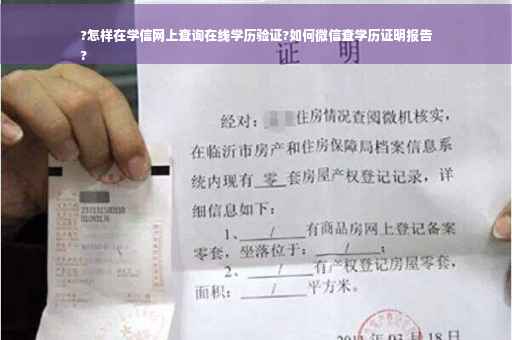 ?怎样在学信网上查询在线学历验证?如何微信查学历证明报告
?
证 明
经对: 住房情况查阅微机核实,
在临沂市房产和住房保障局档案信息系
统内现有 零 套房屋产权登记记录, 详
细信息如下:
1、 / 有商品房网上登记备案
零套, 坐落位于: / ;
2、 / 有产权登记房屋零套,
面积: / 平方米。
03 月 18 日